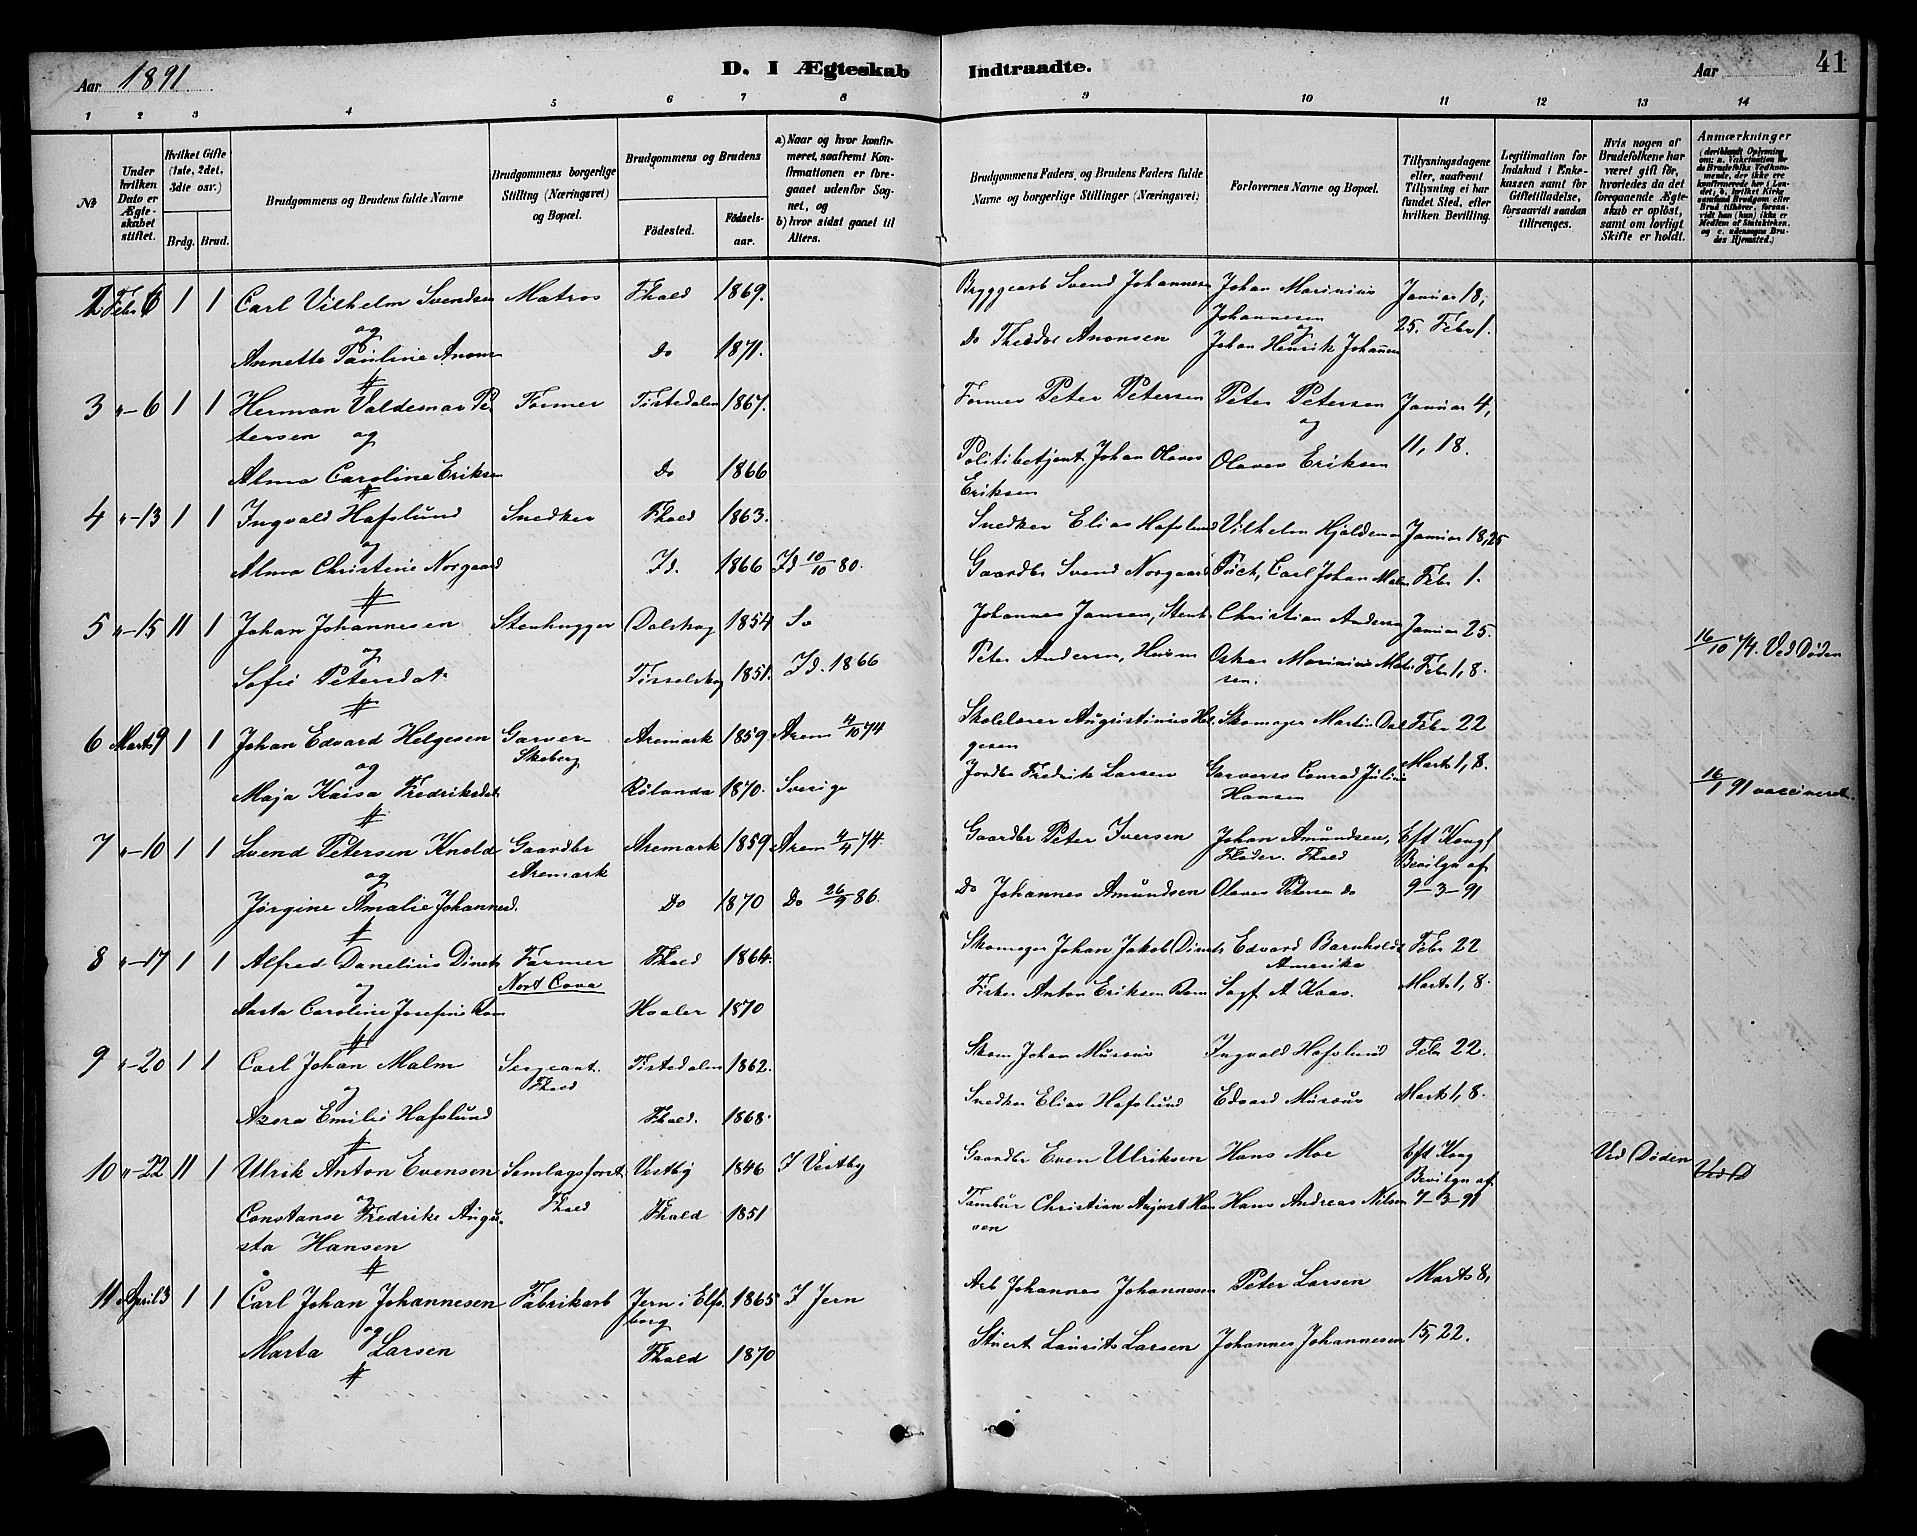 Aar 1891.
D. I Ægteskab Indtraadte.
Aar 41
1 2 3 4 5 6 7 8 9 10 11 12 13 14
No
Under hvilken Dato er Ægteskabet stiftet.
Hvilket Gifte (1ste, 2det, 3die osv.)
Brdg. Brud.
Brudgommens og Brudens fulde Navne
Brudgommens borgerlige Stilling (Næringsvei) og Bopæl.
Brudgommens og Brudens
Fødested.
Fødselsaar.
a) Naar og hvor konfirmeret, saafremt Konfirmationen er foregaaet udenfor Sognet, og
b) hvor sidst gaaet til Alters.
Brudgommens Faders og Brudens Faders fulde Navne og borgerlige Stillinger (Næringsvei)
Forlovernes Navne og Bopæl.
Tillysningsdagene eller, saafremt Tillysning ei har fundet Sted, efter hvilken Bevilling.
Legitimation for Indskud i Enkekassen samt for Giftetilladelse, forsaavidt saadan tiltrænges.
Hvis nogen af Brudefolkene har været gift før, hvorledes da det foregaaende Ægteskab er opløst, samt om lovligt Skifte er holdt.
Anmærkninger (deriblandt Oplysning om: a. Vakcination for de Brudefolks Vedkommende, der ikke ere konfirmerede her i Landet; b. hvilket Kirkesamfund Brudgom eller Brud tilhører, forsaavidt han (hun) ikke er Medlem af Statskirken, og c. udensogns Brudes Hjemsted.)
2 Febr 6 1 1 Carl Vilhelm Svendsen Matros Fhald 1869. Bryggearb Svend Johannesen Johan Marinius Januar 18,
og Johannesen 25. Febr 1.
og
Annette Pauline Anons Do 1871. Do Theodor Anonsen Johan Henrik Johannes
3 "-6 1 1 Herman Valdemar Pe Former Tistedalen 1867. Former Peter Petersen Peter Petersen Januar 4,
tersen og og 11, 18.
Alma Caroline Eriksen Do 1866 Politibetjent Johan Olaves Olaves Eriksen
Eriksen
4 "-13 1 1 Ingvald Hafslund Snedker Fhald 1863. Snedker Elias Hafslund Vilhelm Hjaldema Januar 18, 25
og
Alma Christine Norgaard Id. 1866 Id 10/10 80. Gaardbr Svend Norgaard Puch, Carl Johan Malm Febr 1.
5 "-15 11 1 Johan Johannesen Stenhugger Dalskog 1854 Sv Johannes Jansen, Stenh Christian Anders Januar 25.
og
Sofie Petersdat Tisselskog 1851. Id. 1866 Peter Andersen, Husm Oskar Marinius Mat Febr 1, 8. Ved Døden
sen.
6 Marts 9 1 1 Johan Edvard Helgesen Garver Aremark 1859. Arem 4/10 74 Skolelærer Augustinius Hel Skomager Martin Dal Febr 22
Skeberg gesen
og
Maja Kaisa Fredriksdat Rølanda 1870. Sverige Jordbr Fredrik Larsen Garversv Conrad Julius Marts 1, 8. 16/1 91 vaccineret.
Hansen
7 "-10 1 1 Svend Petersen Knold Gaardbr Aremark 1859 Arem 4/4 74. Gaardbr Peter Iversen Johan Amundsen, Eft Kongl
Aremark Fløder. Fhald Bevilgn af
og
Jørgine Amalie Johannesd. Do 1870 Do 26/9 86. Do Johannes Amundsen Olaves Petersen do 9-3-91
8 "-17 1 1 Alfred Danelius Dinets Farmer Fhald 1864. Skomager Johan Jakob Dinets Edvard Barnholdt Febr 22
Nort Cova Amerika
og
Aasta Caroline Josefine Rom Hvaler 1870 Fisker Anton Eriksen Rom Sagf. A Kaas. Marts 1, 8.
9 "-20 1 1 Carl Johan Malm Sergeant. Tistedalen 1862. Skom Johan Musæus Ingvald Hafslund Febr 22.
Fhald
og
Azora Emilie Hafslund Fhald. 1868. Snedker Elias Hafslund Edvard Musæus Marts 1, 8.
10 "-22 11 1 Ulrik Anton Evensen Samlagsforst Vestby 1846 I Vestby Gaardbr Even Ulriksen Hans Moe Eft Kong Ved Døden Ved D
Fhald Bevilgn af
og
Constanse Fredrike Augu Fhald 1851 Tambur Christian August Han Hans Andreas Nilsen 7-3-91
sta Hansen sen
11 April 3 1 1 Carl Johan Johannesen Fabrikarb Jern i Elfs 1865 I Jern Arb Johannes Johannessen Peter Larsen Marts 8,
borg
og
Marta Larsen Fhald 1870 Stuert Laurits Larsen Johannes Johannesen 15, 22.